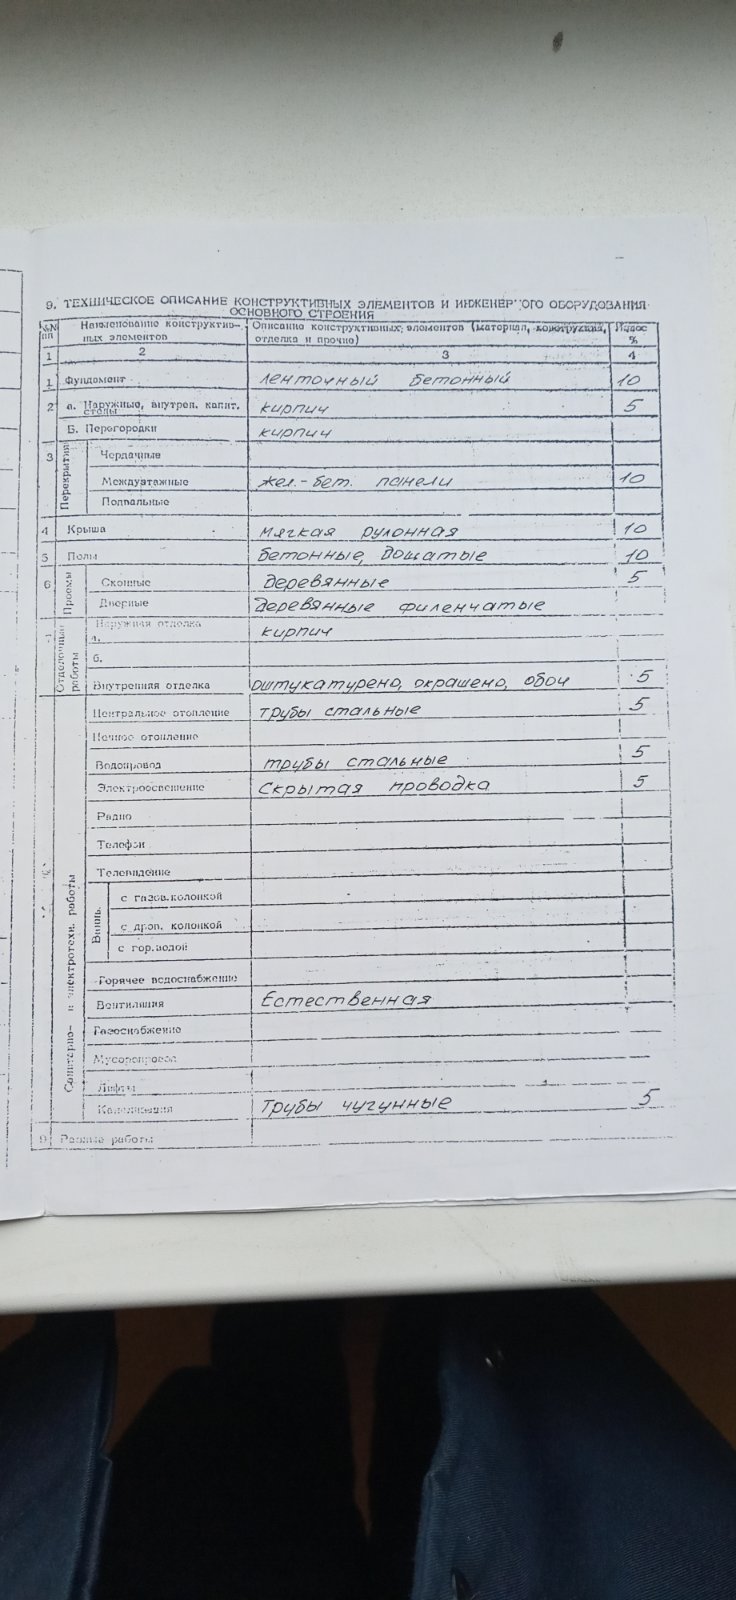 9. ТЕХНИЧЕСКОЕ ОПИСАНИЕ КОНСТРУКТИВНЫХ ЭЛЕМЕНТОВ И ИНЖЕНЕР ОГО ОБОРУДОВАНИЯ
ОСНОВНОГО СТРОЕНИЯ
№№ пп Наименование конструктив- Описание конструктивных элементов (материал, конструкция, Износ
ных элементов отделка и прочно) %
1 2 3 4
1 Фундамент ленточный бетонный 10
2 а. Наружные, внутрен. капит. стены кирпич 5
Б. Перегородки кирпич
3 Перекрытия Чердачные
Междуэтажные жел.-бет. панели 10
Подвальные
4 Крыша мягкая рулонная 10
5 Полы бетонные, дощатые 10
6 Проемы Оконные деревянные 5
Дверные деревянные филенчатые
Отделочные работы Наружная отделка кирпич
а.
б.
Внутренняя отделка оштукатурено, окрашено, обои 5
Санитарно- и электротехн. работы
Центральное отопление трубы стальные 5
Печное отопление
Водопровод трубы стальные 5
Электроосвещение Скрытая проводка 5
Радио
Телефон
Телевидение
Ванны с газов.колонкой
с дров. колонкой
с гор.водой
Горячее водоснабжение
Вентиляция Естественная
Газоснабжение
Мусоропровод
Лифты
Канализация Трубы чугунные 5
9 Разные работы